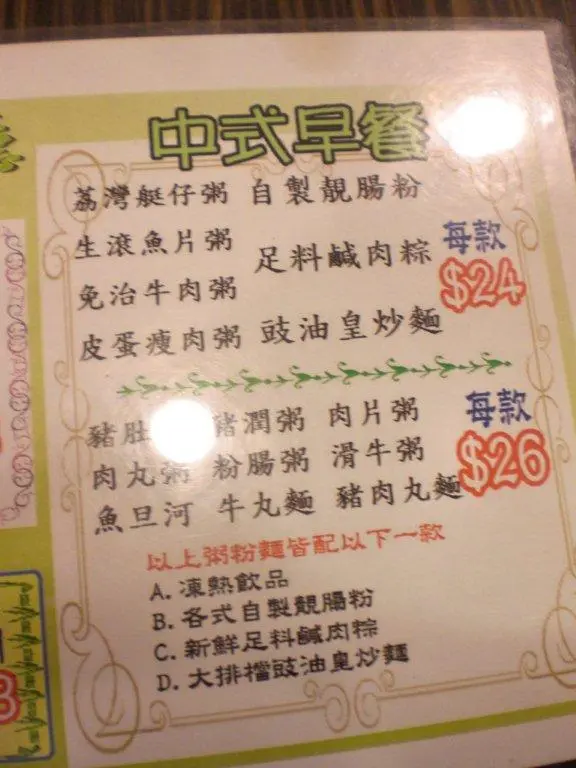 中式早餐
荔灣艇仔粥 自製靚腸粉
生滾魚片粥
足料鹹肉粽
每款
$24
免治牛肉粥
皮蛋瘦肉粥 豉油皇炒麵
豬肚 豬潤粥 肉片粥
每款
$26
肉丸粥 粉腸粥 滑牛粥
魚旦河 牛丸麵 豬肉丸麵
以上粥粉麵皆配以下一款
A. 凍熱飲品
B. 各式自製靚腸粉
C. 新鮮足料鹹肉粽
D. 大排檔豉油皇炒麵